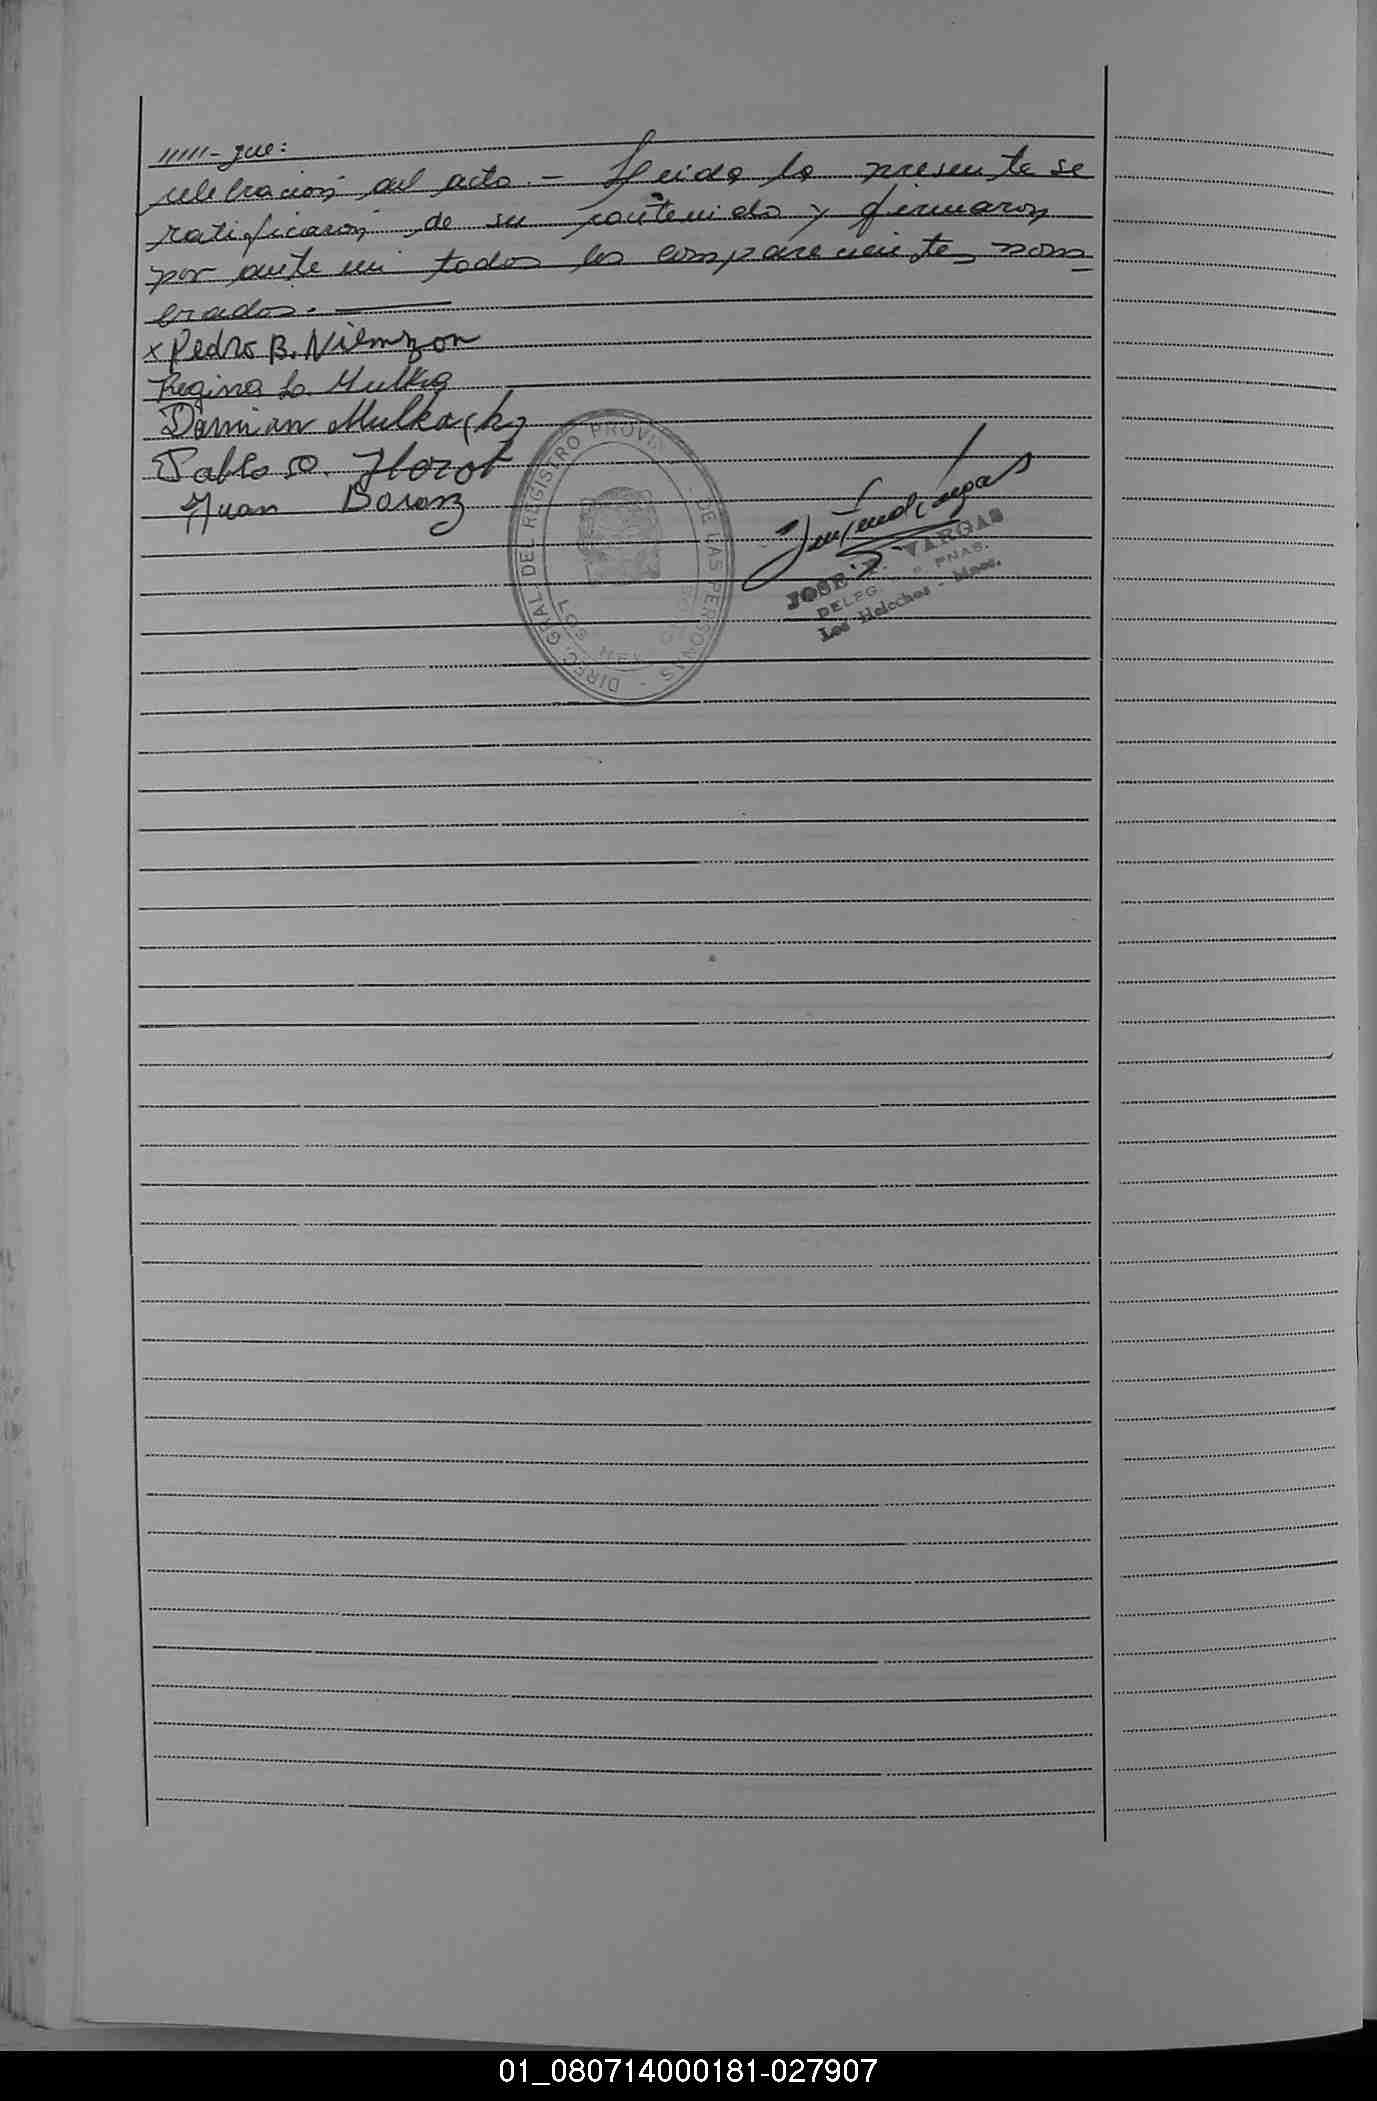 /////-gue:
celebracion del acto.- Leida la presente se
ratificaron de su contenido y firmaron
por ante mi todos los comparecientes nom
brados.
x Pedro B. Niemszon
Regina L. Mulka
Damian Mulka
Pablo O. Horot
Juan Boronz
DIREC. GRAL DEL REGISTRO PROVIN. DE LAS PERSONAS
JOSE F. VARGAS
DELEG. PNAS.
Los Helechos - Mnes.
01_080714000181-027907